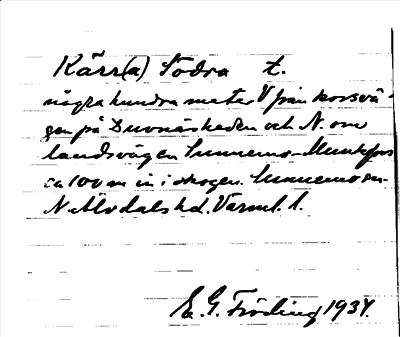 Kärr(a) Södra t.
några hundra meter V från korsvä-
gen på Duvnäsheden och N. om
landsvägen Sunnemo-Munkfors
ca 100 m in i skogen. Sunnemo sn.
N. Älvdals hd. Värml. l.
E. G. Fröding 1937.